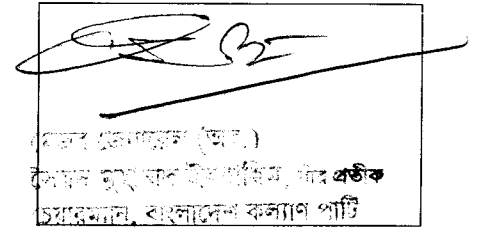 মেজর জেনারেল (অবঃ)
সৈয়দ মুহাম্মদ ইবরাহিম, বীর প্রতীক
চেয়ারম্যান, বাংলাদেশ কল্যাণ পার্টি